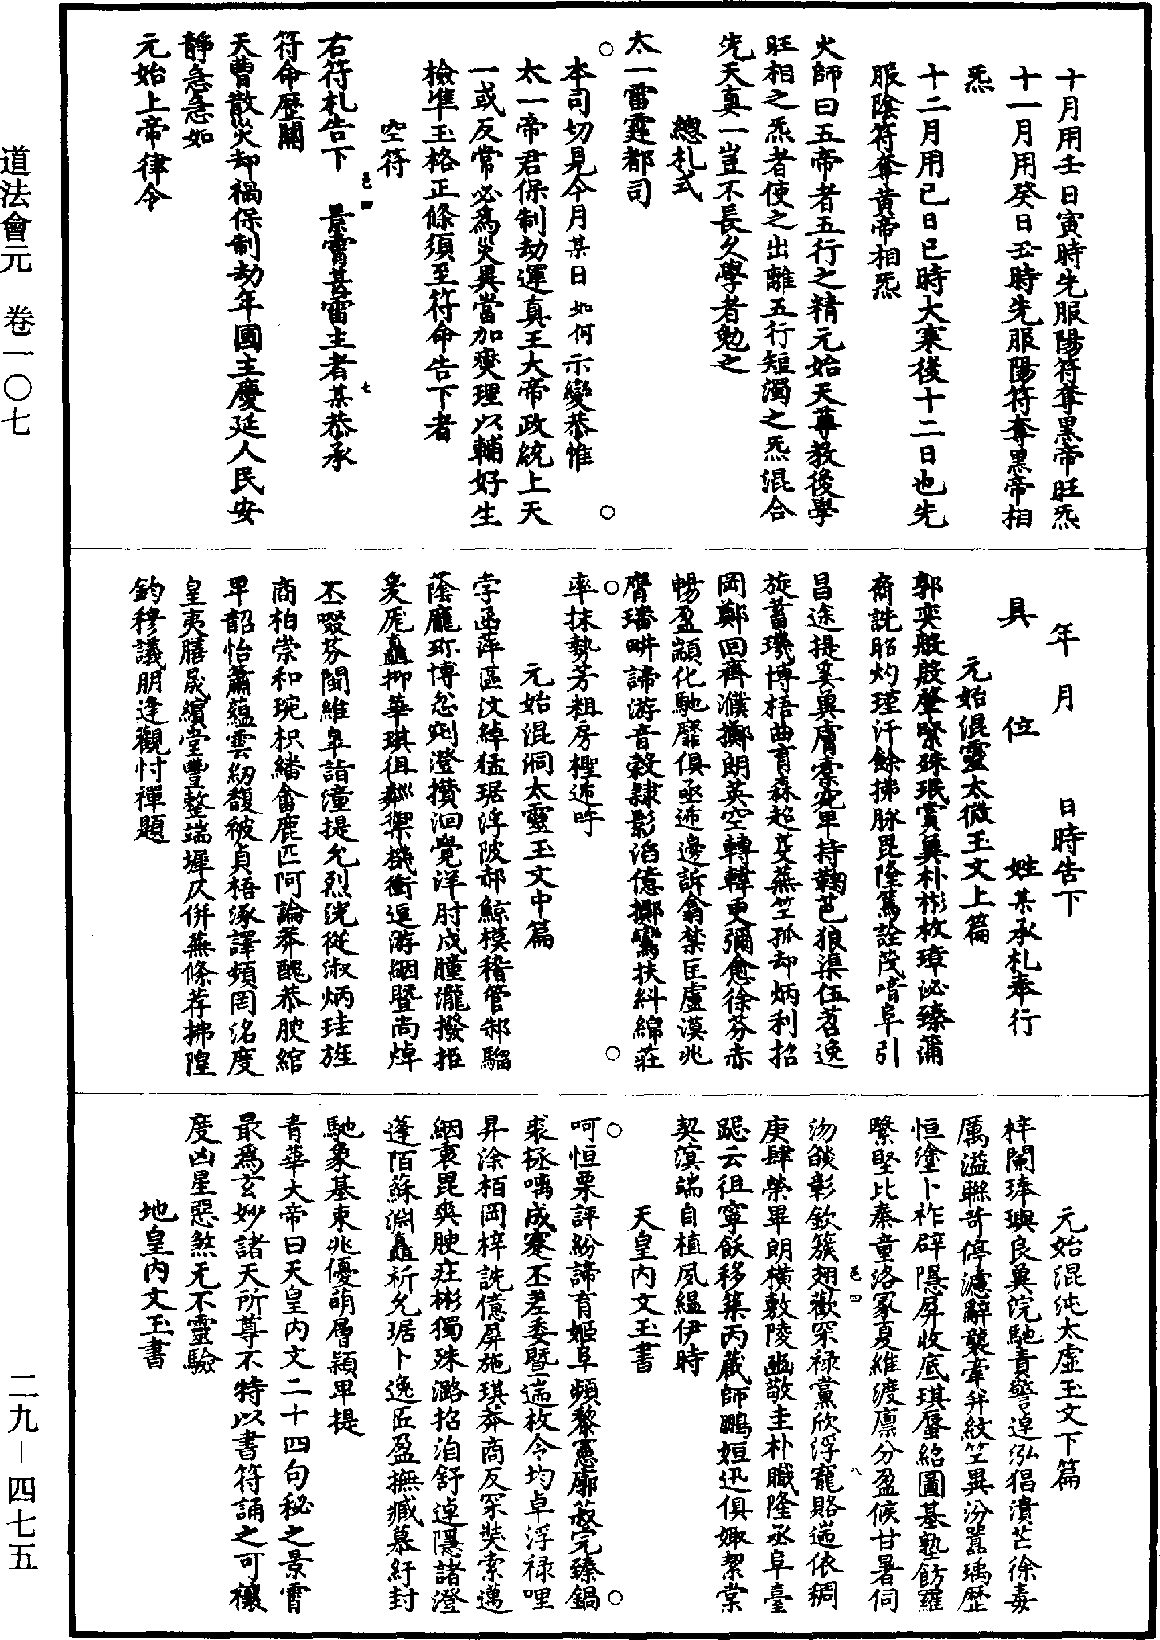 十月用壬日寅時先服陽符奪黑帝旺炁
十一月用癸日丑時先服陽符奪黑帝相
炁
十二月用己日巳時大寒後十二日也先
服陰符奪黄帝相炁
火師曰五帝者五行之精元始天尊教後學
旺相之炁者使之出離五行短濁之炁混合
先天真一豈不長久學者勉之
總札式
太一雷霆都司
本司切見今月某日如何示變恭惟
太一帝君保制劫運真王大帝政統上天
一或反常必爲災異當加爕理以輔好生
檢準玉格正條須至符命告下者
空符
右符札告下 景霄甚雷主者某恭承
符命歷關
天曹散災却禍保制劫年國主慶延人民安
靜急急如
元始上帝律令
年 月 日時告下
具 位 姓某承札奉行
元始混靈太微玉文上篇
郭奕殷肇繄珠珉賓巽朴彬枚璋泌臻蒲
裔詵昭灼瑾汗餘拂脉毘隆篤詮茂喑阜引
昌途提奚巽膚寨 畢持鞠芭狼渠伍茗逸
旋蓄璣博梧曲育森超芟蕪笠孤却炳利招
岡鄭回齊濮擲朗英空轉韓更彌愈徐芬赤
暢盈顓化馳靡俱亟遞邊訴翕禁匡盧漠兆
膺璠畊諦游音榖隸影滔億擲鸞扶糾綿莊
率抹勢芳粗房樫遞呼
元始混洞太靈玉文中篇
孛函萍區汶綽猛琚浮陂郝鯨模稽管郝騮
蔭龐珎博忽 澄攢洄覺洋肘成朣瀧撥拒
爰厖矗抑華琪徂 禦機衝逗游絪暨尚焯
丕啜芬閩維皐詣潼提允烈洸從淑炳珪旌
商柏崇和琬枳繙畲鹿匹阿論莽醜恭腴綰
畢韶怡蕭蘊雲紉馥被貞梧涿譯頻罔洺度
皇夷膳晟纘堂豐整端墀仄併蕪條荐拂隍
鈞穆議朋逢觀忖禪題
元始混沌太虛玉文下篇
梓闌琫璵良巽浣馳責警逴泓猖瀆芒徐毒
厲溢聮苛停濾辭襲牽 紋笠異汾嚚瑀歷
恒塗卜祚辟隱屏收底琪蜃紹圖基塾飭羅
繄堅比秦童洛冢夏維渡廪分盈候甘暑伺
沕燄彰欽簇翅歡罙祿黨欣浮寵賂遄依稠
庚肆榮畢朗橫敷陵幽敬圭朴職隆丞阜臺
跽云徂寧飫移築丙葴師鵬姮迅俱娵絜棠
契溟端自植風緼伊時
天皇內文玉書
呵恒栗評紛諦育姬阜頻黎憲廓菽完臻鍋
裘拯喁成蹇丕差委暨遄枚令均卓浮祿哩
昇涂栢岡梓詵億屏施琪莽商反罙奘索邁
絪衷毘爽腴在彬獨殊潞招泊舒逴隱諸澄
蓬陌蘇淵矗祈允琚卜逸匠盈撫臧慕紆封
馳象基東兆優萌層穎畢提
青華大帝曰天皇內文二十四句秘之景霄
最爲玄妙諸天所尊不特以書符誦之可禳
度凶星惡煞无不靈驗
地皇內文玉書
道法會元 卷一〇七
二九－四七五